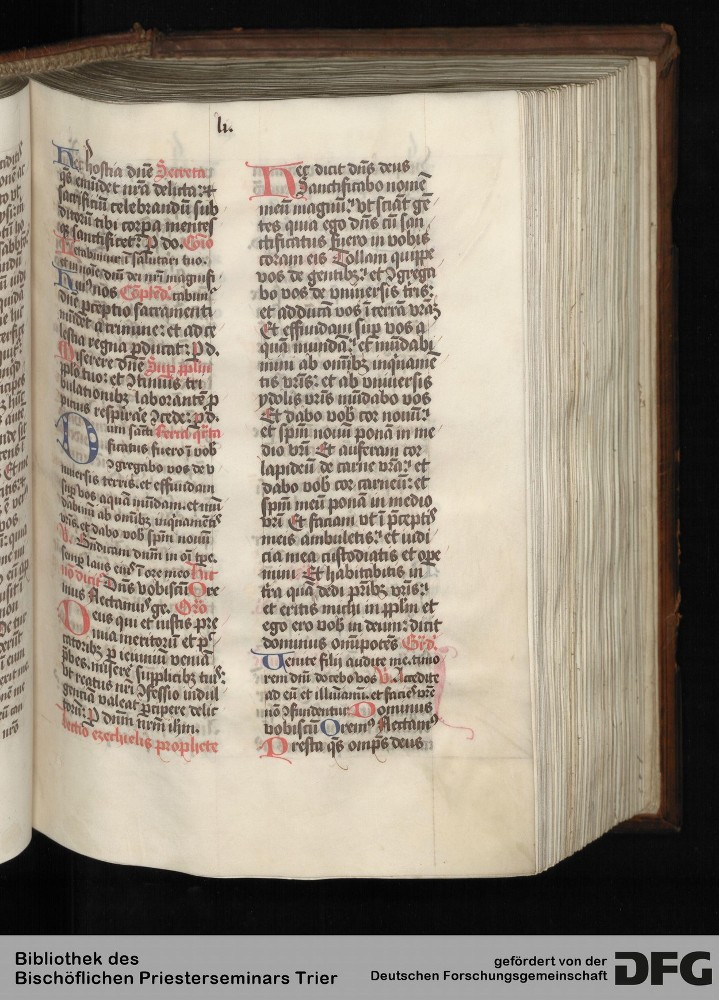 lı.
Hec hostia dn̄e Secreta
qs̄ emūdet nr̄a delicta: ⁊t
sacrificiū celebrandū sub
ditorū tibi corpa mentes
qꝫ sanctificet: P do. Cōio
Letabimur ī salutari tuo.
et in noīe dnī dei nr̄i magnifi
nos Cōplēd tabim
dn̄e pceptio sacramenti
mūdet a crimine: et ad ce
lestia regna pducat: P d.
Miserere dn̄e Sup pplm
pplo tuo: et ꝯtinuis tri
bulationibꝫ laborantē p
picius respirāe ꝯcede: p d.
um sāctī feria q̄rta
ficatus fuero ī vob
ꝯgregabo vos de v
niuersis terris. et effundam
sup vos aquā mūdam. et mū
dabim̄ ab om̄ibꝫ inq̇namētꝭ
vr̄is. et dabo vob spm̄ nouū
V. Bn̄dicam dnm̄ in oī tpe.
semp laus eiꝰ ī ore meo Hic
nō dicit Dn̄s vobiscū Ore
mus Flectamꝰ ge. Orō
Deus qui et iustis pre
mia meritorū et pc̄
catoribꝫ p ieiuniū veniā
p̄bes. miserē supplicibꝫ tuꝭ:
vt reatus nr̄i ꝯfessio indul
gentiā valeat pcipere delic
torū: P dnm̄ nr̄m ihm̄.
Lectio ezechielis prophete
Hec dicit dn̄s deus
Sanctificabo nomē
meū magnū: vt sciāt gē
tes quia ego dn̄s cū san
ctificatus fuero in vobis
coram eis Tollam quippe
vos de gentibꝫ: et ꝯgrega
bo vos de vniuersis tr̄is:
et adducā vos ī terrā vr̄aꝫ
Et effundam sup vos a
quā mundā: et mūdabi
mini ab om̄ibꝫ inq̇namē
tis vr̄is: et ab vniuersis
ydolis vr̄is mūdabo vos
Et dabo vob cor nouū:
et spm̄ nouū ponā in me
dio vr̄i Et auferam cor
lapideū de carne vr̄a: et
dabo vob cor carneū: et
spm̄ meū ponā in medio
vr̄i Et faciam vt ī p̄ceptꝭ
meis ambuletis: et iudi
cia mea custodiatis et ope
mini Et habitabitis in
tr̄a quā dedi pr̄ibꝫ vr̄is:
et eritis michi in pplm̄ et
ego ero vob in deum: dicit
dominus om̄ipotēs Gr̄d.
Venite filij audite me. timo
rem dn̄i docebo vos V. Accedite
ad eū et illūamī. et facieꝭ vr̄e
nō ꝯfundentur Dominus
vobiscū Oremꝰ Flectamꝰ
Presta qs̄ omps̄ deus
Bibliothek des
Bischöflichen Priesterseminars Trier
gefördert von der
Deutschen Forschungsgemeinschaft
DFG